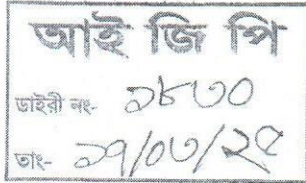 আই জি পি
ডাইরী নং- ১৮৩০
তাং- ১৭/০৩/২৫